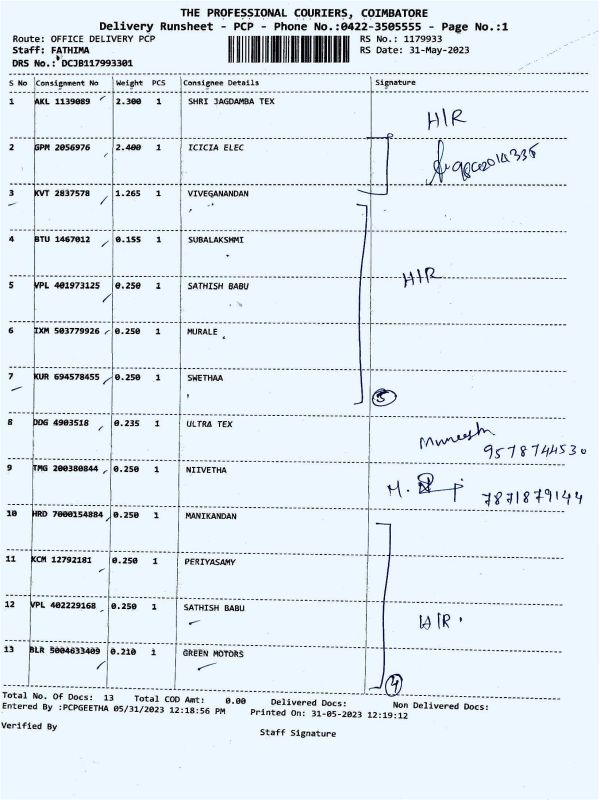 THE PROFESSIONAL COURIERS, COIMBATORE
Delivery Runsheet - PCP - Phone No.:0422-3505555 - Page No.:1
Route: OFFICE DELIVERY PCP RS No.: 1179933
Staff: FATHIMA RS Date: 31-May-2023
DRS No.: DCJB117993301
S No Consignment No Weight PCS Consignee Details Signature
1 AKL 1139089 2.300 1 SHRI JAGDAMBA TEX
H/R
2 GPM 2056976 2.400 1 ICICIA ELEC
3 KVT 2837578 1.265 1 VIVEGANANDAN
4 BTU 1467012 0.155 1 SUBALAKSHMI
5 VPL 401973125 0.250 1 SATHISH BABU H/R
6 IXM 503779926 0.250 1 MURALE
7 KUR 694578455 0.250 1 SWETHAA
5
8 DDG 4903518 0.235 1 ULTRA TEX
9578744530
9 TMG 200380844 0.250 1 NIIVETHA
M. 7871879144
10 HRD 7000154884 0.250 1 MANIKANDAN
11 KCM 12792181 0.250 1 PERIYASAMY
12 VPL 402229168 0.250 1 SATHISH BABU H/R
13 BLR 5004633409 0.210 1 GREEN MOTORS
4
Total No. Of Docs: 13 Total COD Amt: 0.00 Delivered Docs: Non Delivered Docs:
Entered By :PCPGEETHA 05/31/2023 12:18:56 PM Printed On: 31-05-2023 12:19:12
Verified By Staff Signature